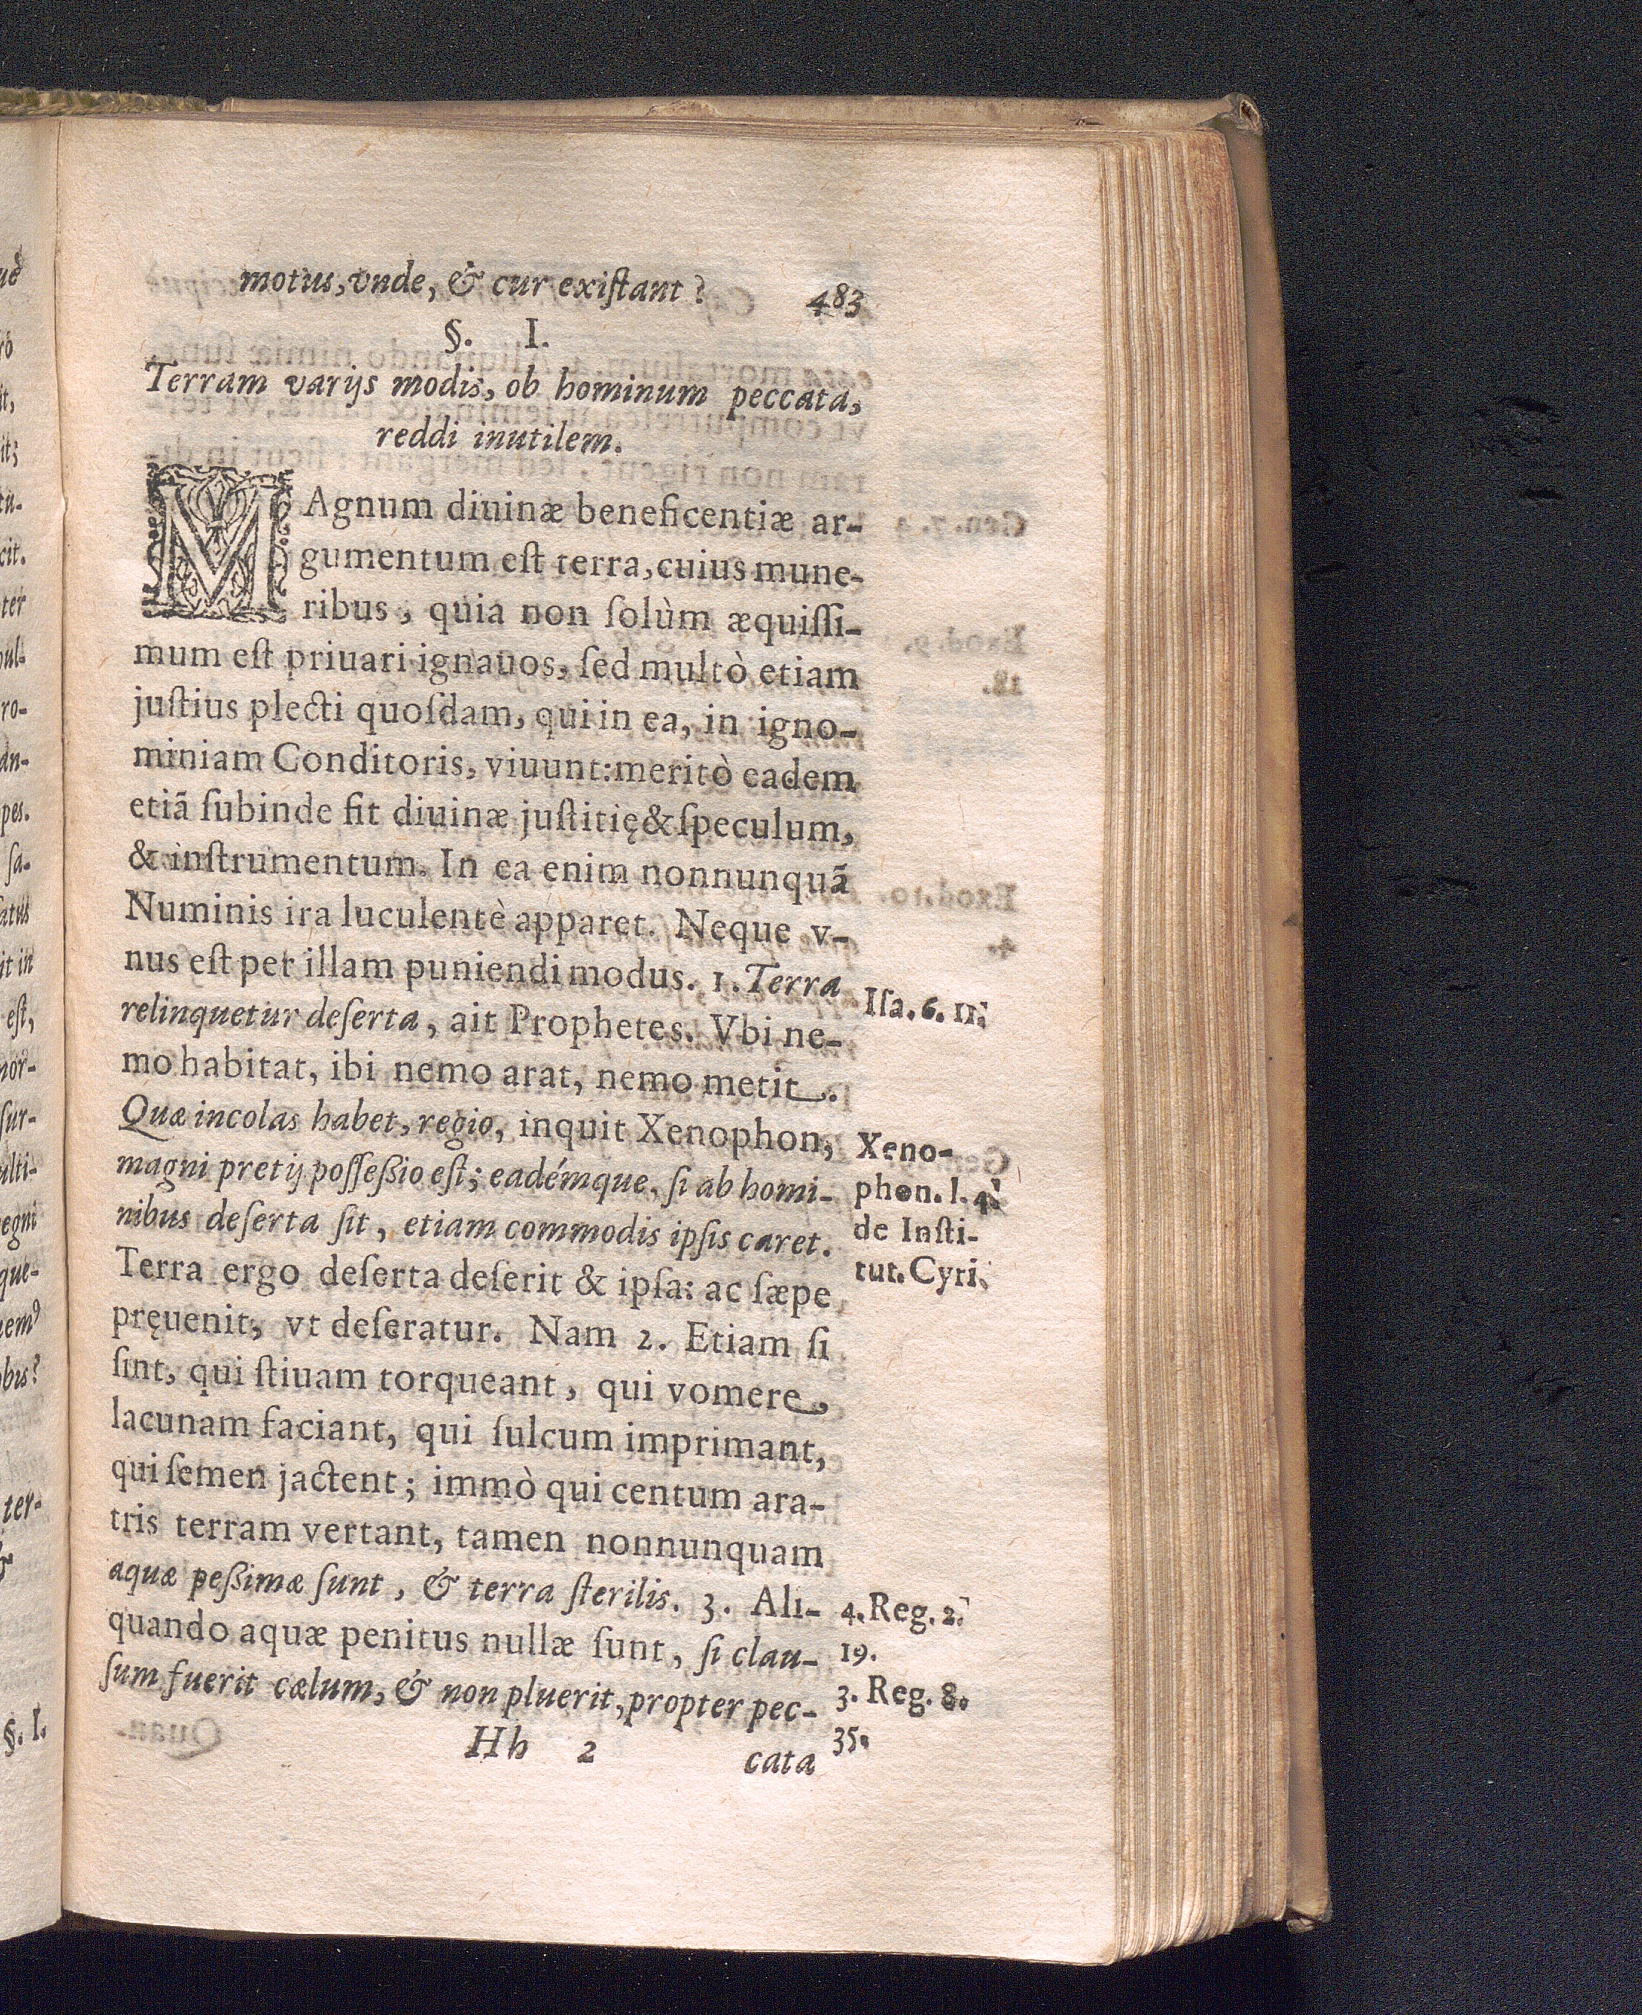 motus, vnde, & cur exiſtant? 483
§. I.
Terram varijs modis, ob hominum peccata,
reddi inutilem.
MAgnum diuinæ beneficentiæ ar-
gumentum eſt terra, cuius mune-
ribus, quia non ſolùm æquiſſi-
mum eſt priuari ignauos, ſed multò etiam
juſtius plecti quoſdam, qui in ea, in igno-
miniam Conditoris, viuunt: meritò eadem
etiã ſubinde fit diuinæ juſtitię & ſpeculum,
& inſtrumentum. In ea enim nonnunquã
Numinis ira luculentè apparet. Neque v-
nus eſt per illam puniendi modus. 1. Terra
relinquetur deſerta, ait Prophetes. Vbi ne-
mo habitat, ibi nemo arat, nemo metit.
Quæ incolas habet, regio, inquit Xenophon,
magni pretij poſſeßio eſt; eadémque, ſi ab homi-
nibus deſerta ſit, etiam commodis ipſis caret.
Terra ergo deſerta deſerit & ipſa: ac ſæpe
pręuenit, vt deſeratur. Nam 2. Etiam ſi
ſint, qui ſtiuam torqueant, qui vomere,
lacunam faciant, qui ſulcum imprimant,
qui ſemen jactent; immò qui centum ara-
tris terram vertant, tamen nonnunquam
aquæ peßimæ ſunt, & terra ſterilis. 3. Ali-
quando aquæ penitus nullæ ſunt, ſi clau-
ſum fuerit cælum, & non pluerit, propter pec-
Hh 2 cata
Iſa. 6. 11.
Xeno-
phon. l. 4.
de Inſti-
tut. Cyri.
4. Reg. 2.
19.
3. Reg. 8.
35.